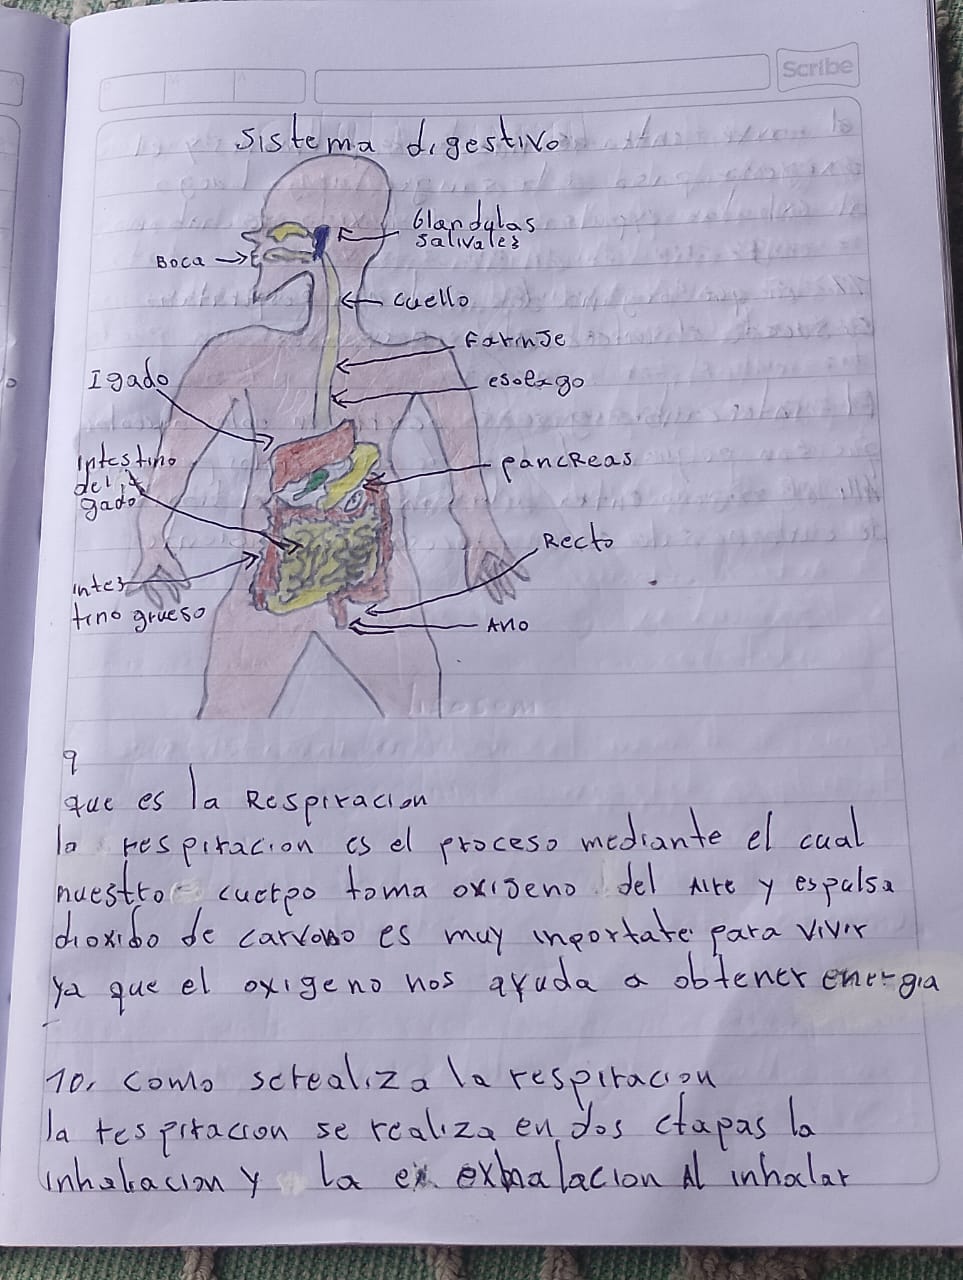 Scribe
sistema digestivo
Glandulas
salivales
Boca
cuello
Farinje
Igado
esofago
intestino
del
gado
pancreas
Recto
intes
tino grueso
Ano
9
que es la Respiracion
la respiracion es el proceso mediante el cual
nuestro cuerpo toma oxigeno del Aire y espulsa
dioxido de carvono es muy inportate para vivir
ya que el oxigeno nos ayuda a obtener energia
10. como serealiza la respiracion
la respiracion se realiza en dos etapas la
inhalacion y la ex exhalacion Al inhalar